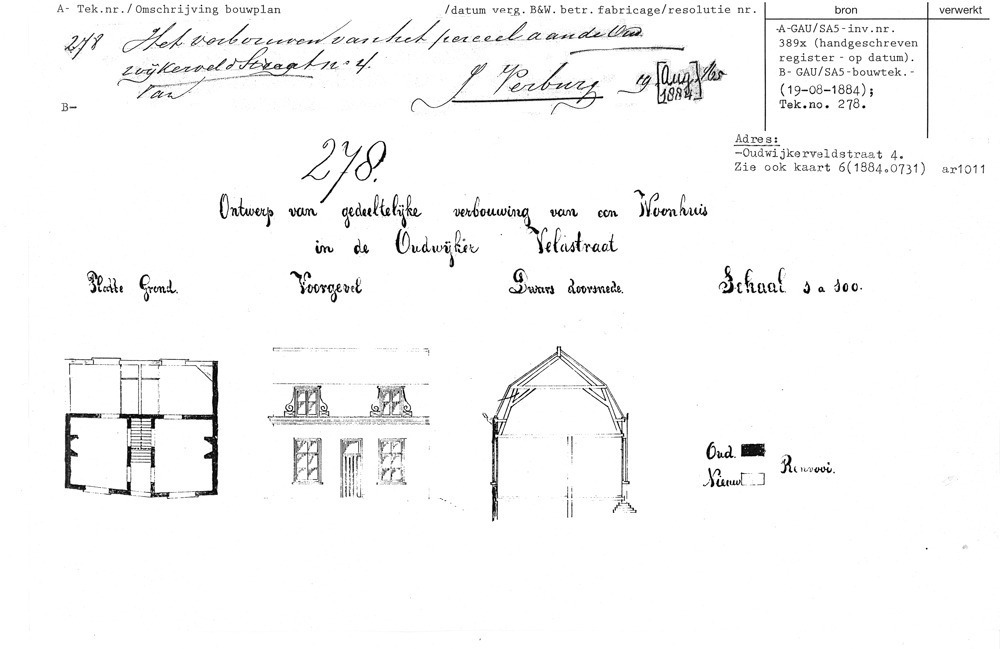 A- Tek.nr./ Omschrijving bouwplan /datum verg. B&W. betr. fabricage/resolutie nr. bron verwerkt
278 Het verbouwen van het perceel aan de Oud
wijkerveldstraat no 4.
Van J Verburg 19 [Aug. 1884]
B-
A-GAU/SA5-inv.nr.
389x (handgeschreven
register - op datum).
B- GAU/SA5-bouwtek.-
(19-08-1884);
Tek.no. 278.
Adres:
-Oudwijkerveldstraat 4.
Zie ook kaart 6(1884.0731) ar1011
278.
Ontwerp van gedeeltelijke verbouwing van een Woonhuis
in de Oudwijker Veldstraat
Platte Grond. Voorgevel Dwars doorsnede. Schaal 1 a 100.
Oud.
Nieuw Renvooi.